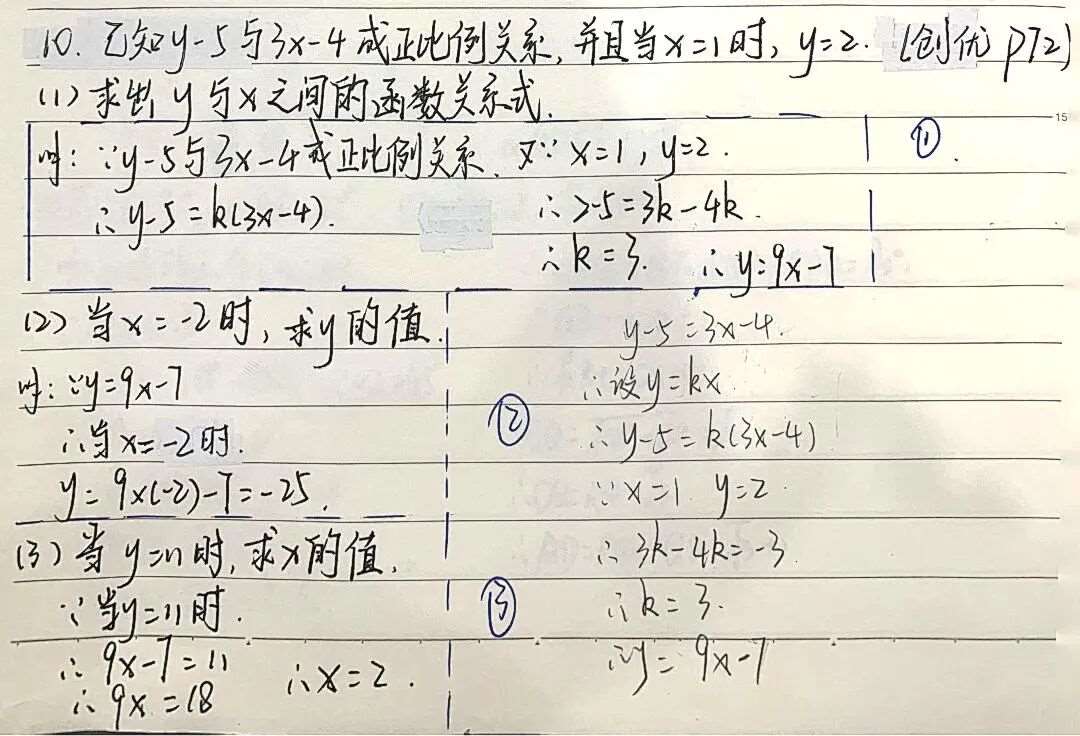 10. 已知y-5与3x-4成正比例关系,并且当x=1时, y=2. (创优 P72)
(1) 求出y与x之间的函数关系式.
15
解: ∵y-5与3x-4成正比例关系. 又∵ x=1, y=2.
①.
∴ y-5=k(3x-4).
∴ 2-5=3k-4k.
∴ k=3. ∴ y=9x-7
(2) 当x=-2时, 求y的值.
解: ∵y=9x-7
∴当x=-2时.
y=9×(-2)-7=-25.
②
(3) 当y=11时, 求x的值.
∵当y=11时.
③
∴ 9x-7=11
∴ 9x=18
∴x=2.
y-5=3x-4.
∴设y=kx
∴ y-5=k(3x-4)
∵ x=1 y=2
∴ 3k-4k=-3
∴ k=3.
∴y=9x-7